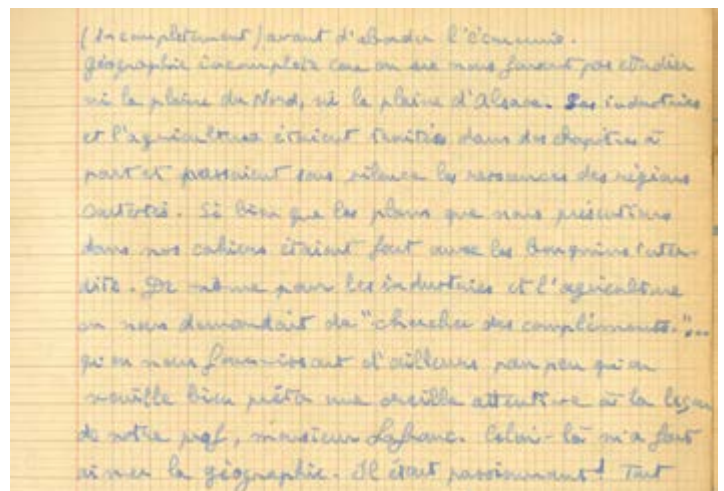 (Incomplètement) avant d'aborder l'économie.
géographie incomplète car on ne nous faisait pas étudier
ni la plaine du Nord, ni la plaine d'Alsace. Les industries
et l'agriculture étaient traitées dans des chapitres à
part et passaient sous silence les ressources des régions
Si bien que les plans que nous présentions
dans nos cahiers étaient faits avec les bouquins inter-
dits. De même pour les industries et l'agriculture
on nous demandait de "chercher des compléments."...
qu'on nous fournissait d'ailleurs pour peu qu'on
veuille bien prêter une oreille attentive à la leçon
de notre prof, monsieur Lefranc. Celui-là m'a fait
aimer la géographie. Il était passionnant! Tout